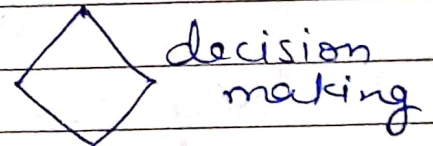 decision
making